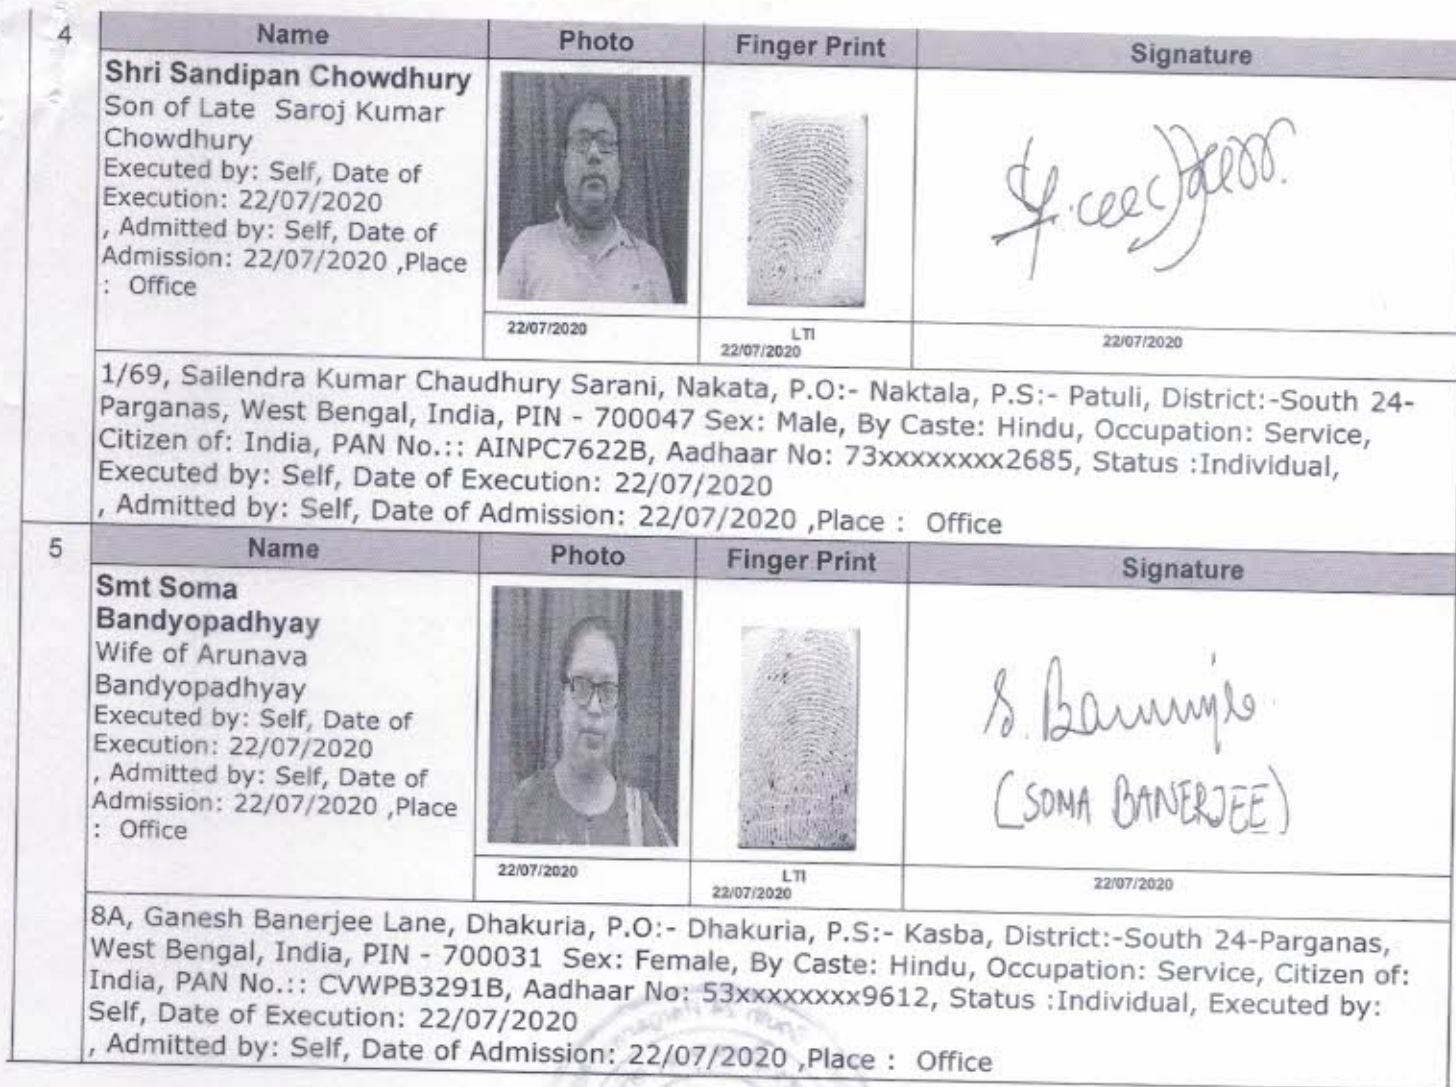 4
Name Photo Finger Print Signature
Shri Sandipan Chowdhury
Son of Late Saroj Kumar
Chowdhury
Executed by: Self, Date of
Execution: 22/07/2020
, Admitted by: Self, Date of
Admission: 22/07/2020 ,Place
: Office
22/07/2020
LTI
22/07/2020
22/07/2020
1/69, Sailendra Kumar Chaudhury Sarani, Nakata, P.O:- Naktala, P.S:- Patuli, District:-South 24-
Parganas, West Bengal, India, PIN - 700047 Sex: Male, By Caste: Hindu, Occupation: Service,
Citizen of: India, PAN No.:: AINPC7622B, Aadhaar No: 73xxxxxxxx2685, Status :Individual,
Executed by: Self, Date of Execution: 22/07/2020
, Admitted by: Self, Date of Admission: 22/07/2020 ,Place : Office
5
Name Photo Finger Print Signature
Smt Soma
Bandyopadhyay
Wife of Arunava
Bandyopadhyay
Executed by: Self, Date of
Execution: 22/07/2020
, Admitted by: Self, Date of
Admission: 22/07/2020 ,Place
: Office
22/07/2020
LTI
22/07/2020
S. Banerjee
(SOMA BANERJEE)
22/07/2020
8A, Ganesh Banerjee Lane, Dhakuria, P.O:- Dhakuria, P.S:- Kasba, District:-South 24-Parganas,
West Bengal, India, PIN - 700031 Sex: Female, By Caste: Hindu, Occupation: Service, Citizen of:
India, PAN No.:: CVWPB3291B, Aadhaar No: 53xxxxxxxx9612, Status :Individual, Executed by:
Self, Date of Execution: 22/07/2020
, Admitted by: Self, Date of Admission: 22/07/2020 ,Place : Office